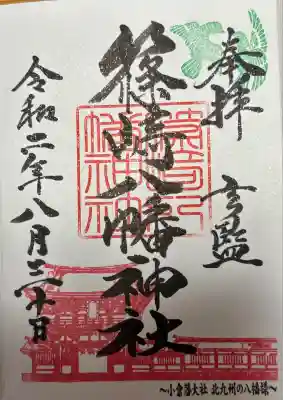 奉拝
篠崎八幡神社
令和二年八月三十日
篠崎八幡神社
～小倉藩大社 北九州の八幡様～